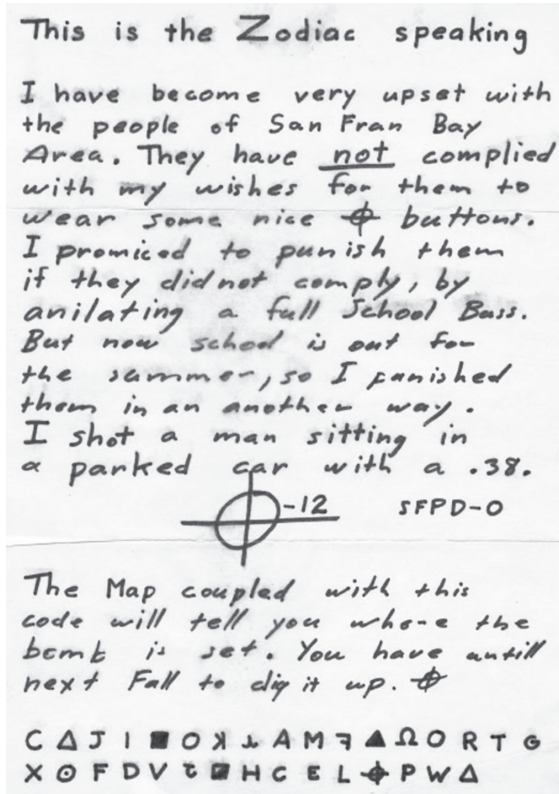 This is the Zodiac speaking
I have become very upset with
the people of San Fran Bay
Area. They have not complied
with my wishes for them to
wear some nice ⌖ buttons.
I promiced to punish them
if they did not comply, by
anilating a full School Buss.
But now school is out for
the summer, so I punished
them in an another way.
I shot a man sitting in
a parked car with a .38.
⌖-12 SFPD-0
The Map coupled with this
code will tell you whore the
bomb is set. You have antill
next Fall to dig it up. ⌖
C Δ J I ■ O ꓘ ⅄ A M ꟻ ▲ Ω O R T G
X ⊙ F D V Ʇ ◪ H C E L ⌖ P W Δ